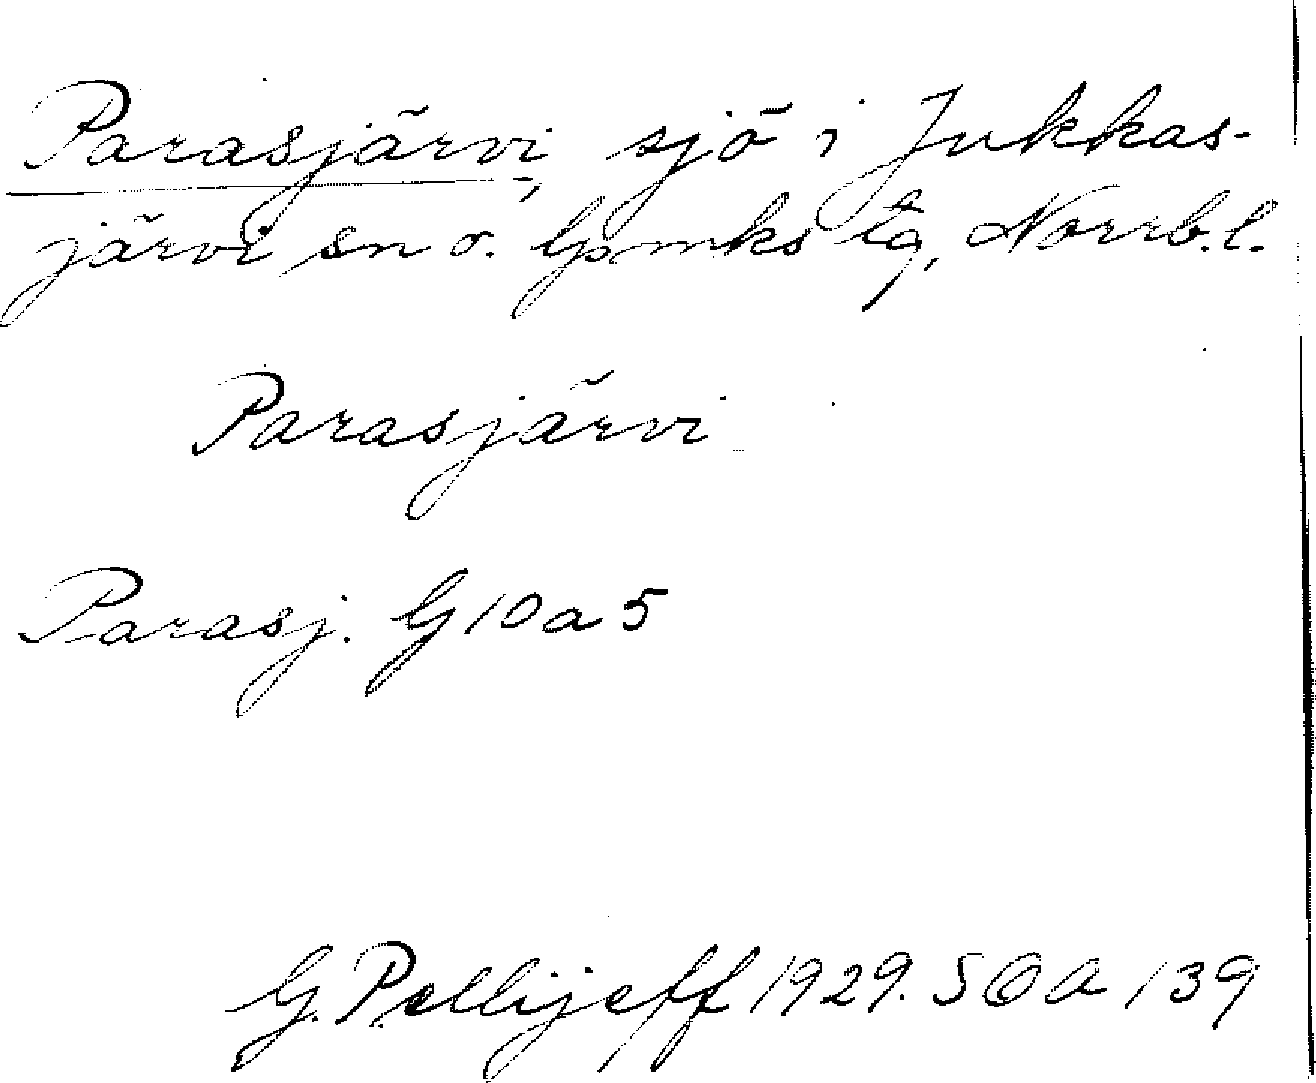 Parasjärvi, sjö i Jukkas-
järvi sn o. lpmks tg, Norrb.l.
Parasjärvi
Parasj. G 10 a 5
G. Pellijeff 1929. SOA 139